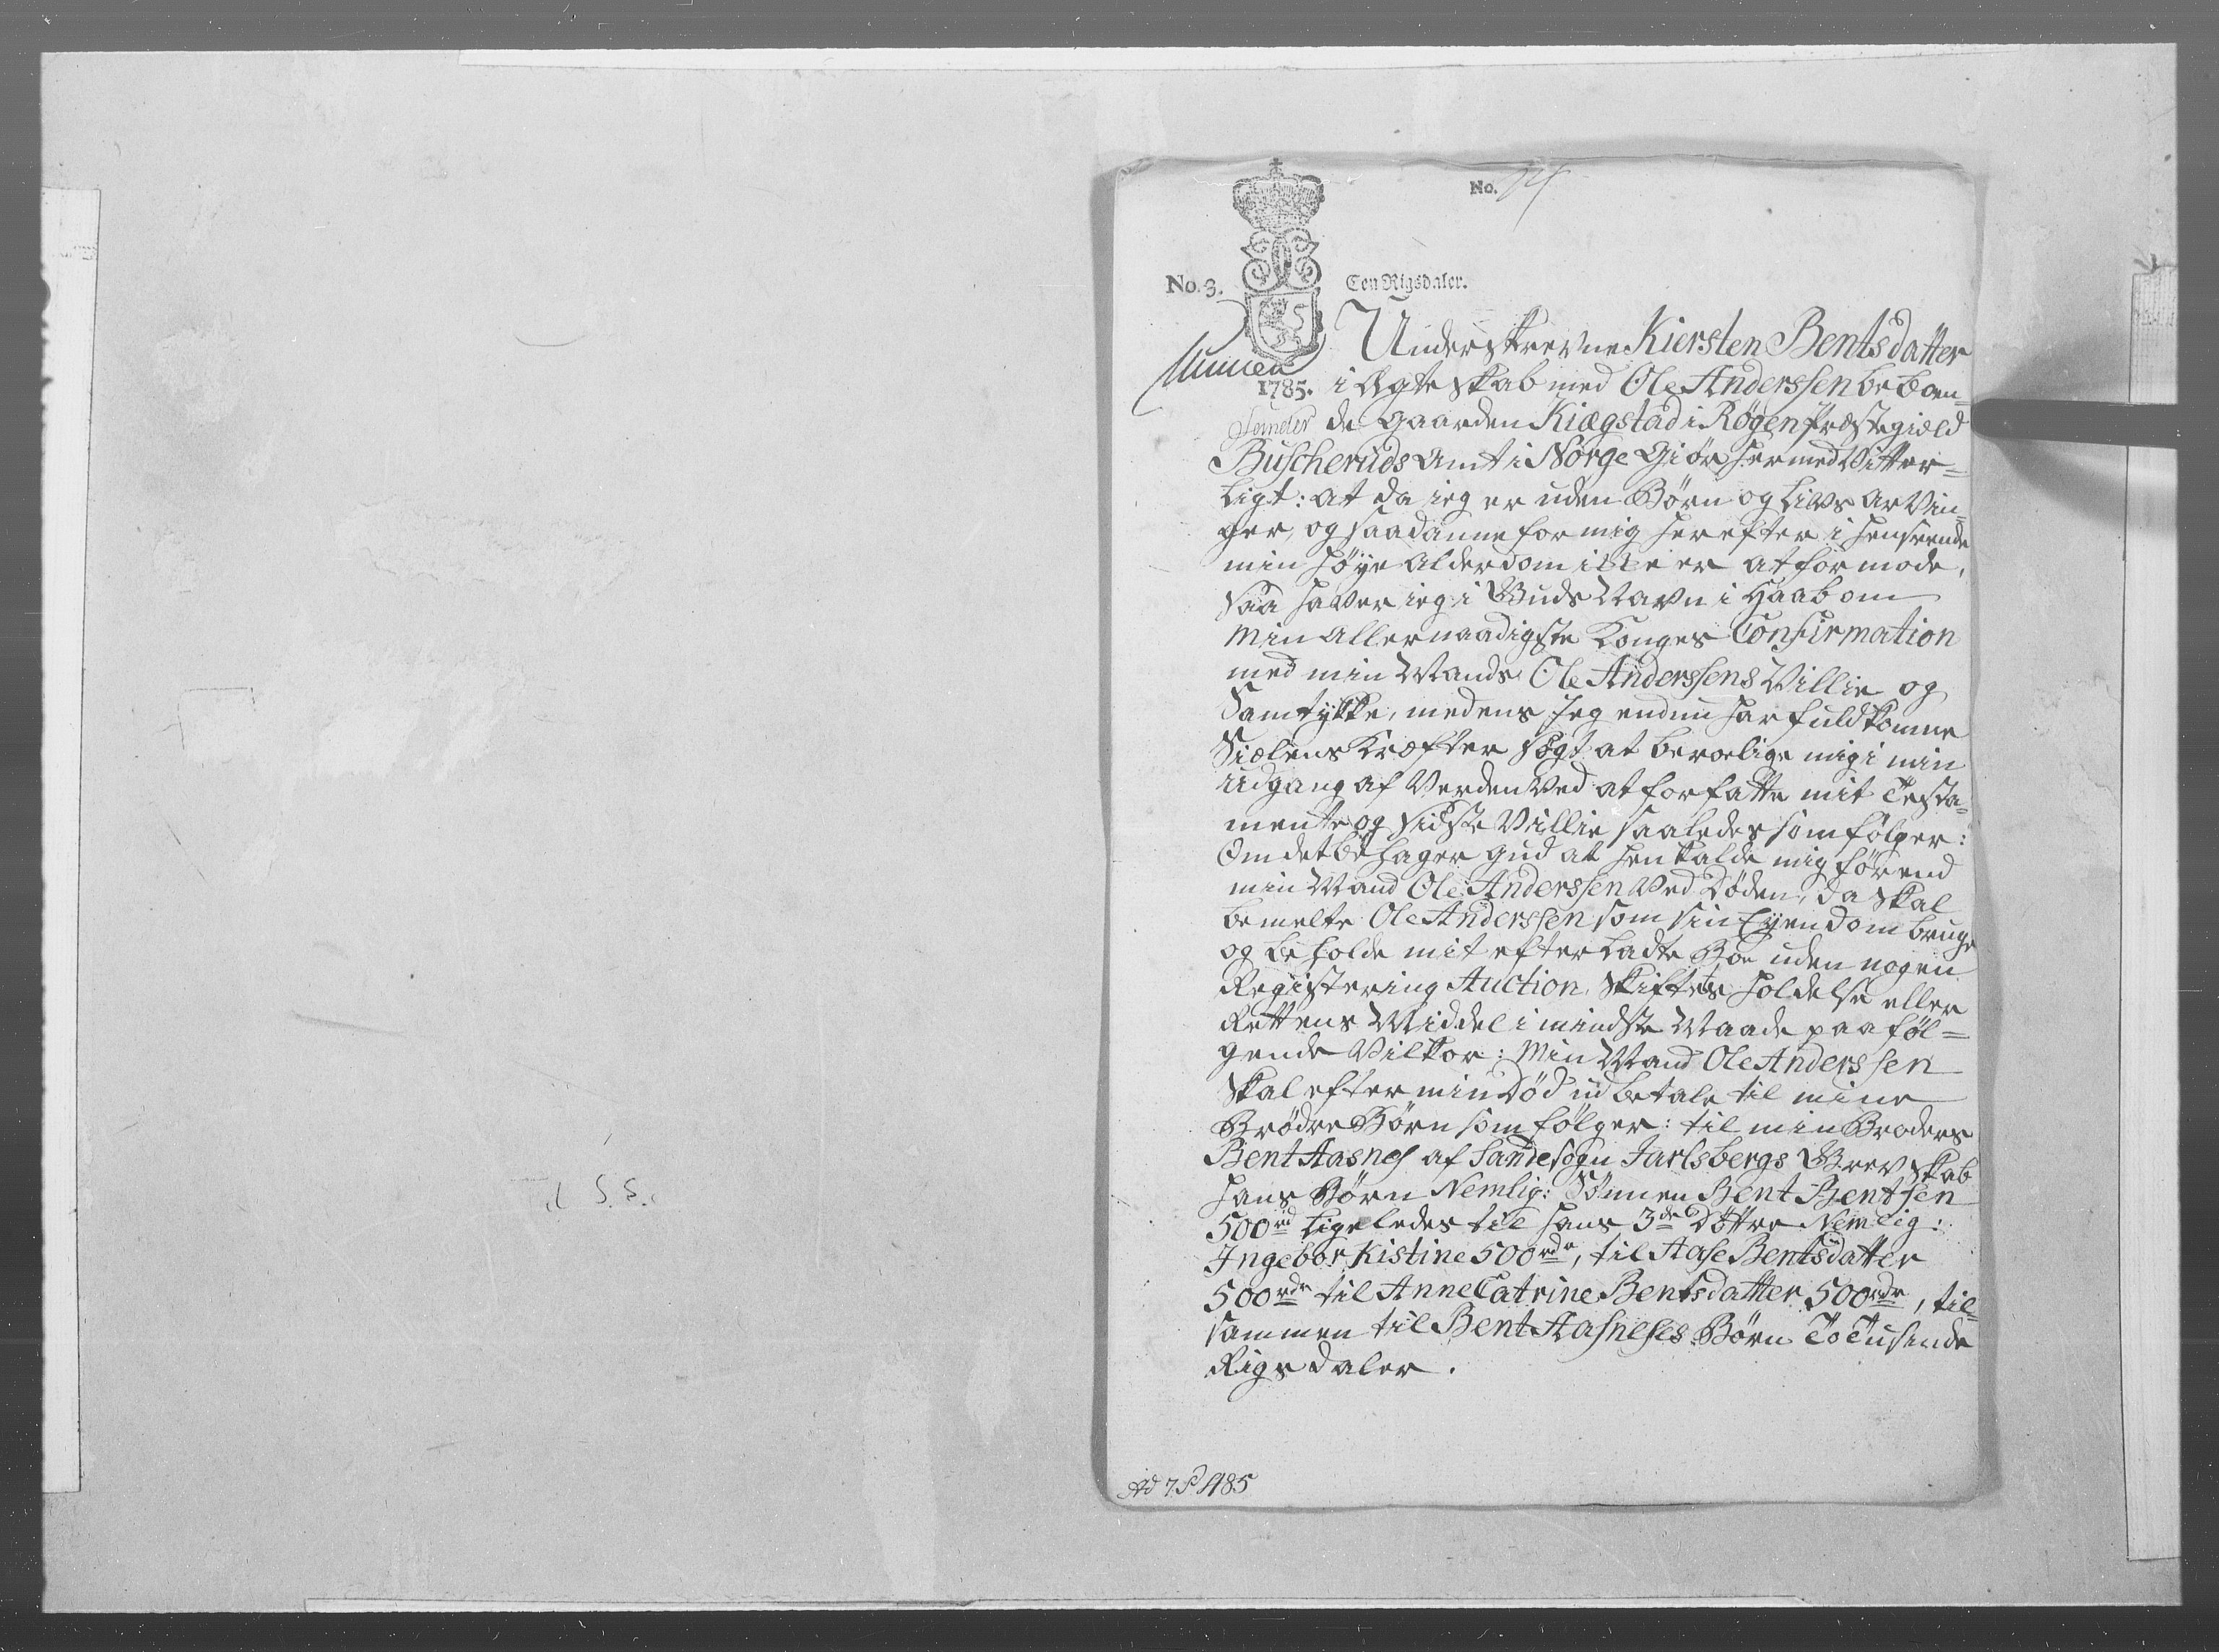 No.
No. 3.
Een Rigsdaler.
1785.
Underskrevne Kiersten Bentsdatter
i Ægteskab med Ole Anderssen beboen-
de Gaarden Kiægstad i Røgen Præstegield
Buscheruds Amt i Norge Giør hermed Vitter=
ligt: at da ieg er uden Børn og Livs Arvin-
ger, og saadanne for mig herefter i henseende
min høye Alderdom ikke er at formode,
saa haver ieg i Guds Navn i Haab om
Min Allernaadigste Konges Confirmation
med min Mands Ole Anderssens Villie og
Samtykke, medens Jeg endnu har fuldkomne
Siælens Kræfter søgt at beroelige mig i min
Udgang af Verden ved at forfatte mit Testa=
mente og sidste Villie saaledes som følger:
Om det behager Gud at henkalde mig førend
min Mand Ole Anderssen ved Døden, da skal
bemelte Ole Anderssen som sin Eyendom bruge
og beholde mit efterladte Boe uden nogen
Registering Auction, Skiftes holdelse eller
Rettens Middel i mindste Maade paa føl=
gende Vilkor: Min Mand Ole Anderssen
skal efter min Død udbetale til mine
Brødre Børn som følger: til min Broders
Bent Aasnes af Sande sogn Jarlsbergs Grevskab
hans Børn Nemlig: Sønnen Bent Bentsen
500 rd ligeledes til hans 3de Døttre Nemlig:
Ingebor Kistine 500 rdr, til Aase Bentsdatter
500 rdr til Anne Catrine Bentsdatter 500 rdr, til=
sammen til Bent Aasneses Børn To Tusinde
Rigsdaler.